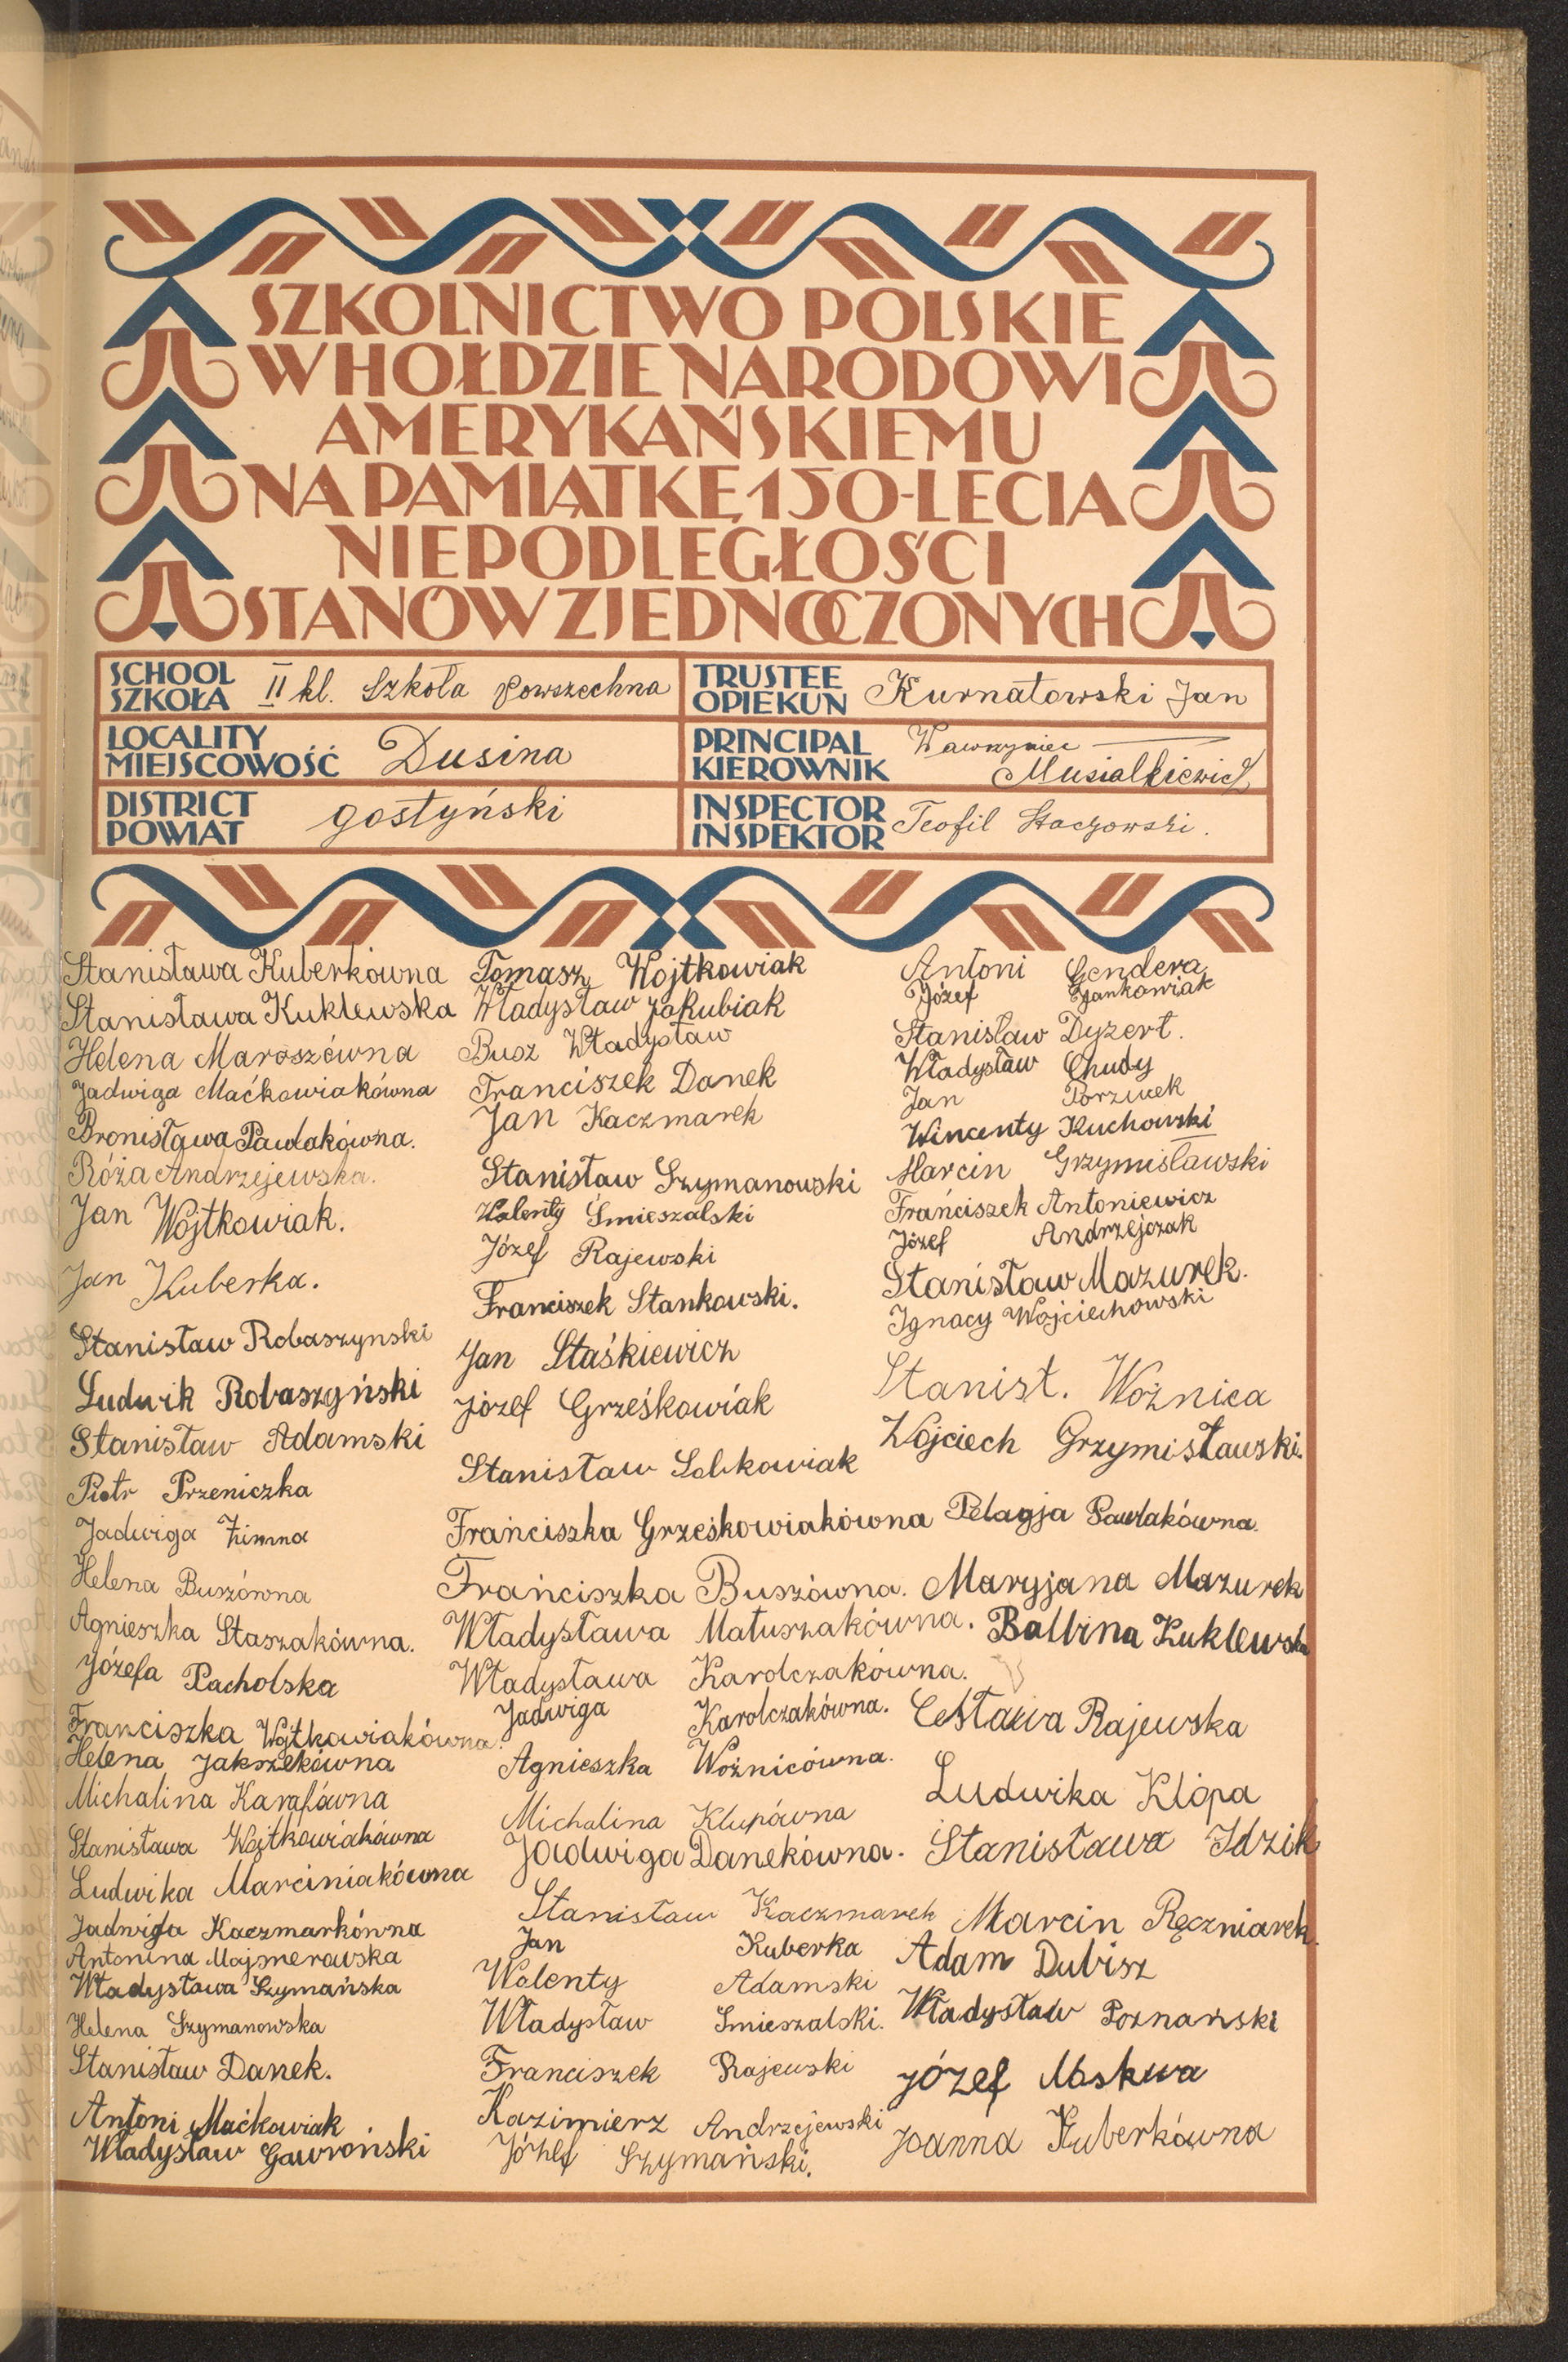 SZKOLNICTWO POLSKIE
W HOŁDZIE NARODOWI
AMERYKAŃSKIEMU
NA PAMIĄTKĘ 150-LECIA
NIEPODLEGŁOŚCI
STANÓW ZJEDNOCZONYCH
SCHOOL
SZKOŁA
II kl. Szkoła Powszechna
TRUSTEE
OPIEKUN
Kurnatowski Jan
LOCALITY
MIEJSCOWOŚĆ
Dusina
PRINCIPAL
KIEROWNIK
Wawrzyniec
Musialkiewicz
DISTRICT
POWIAT
gostyński
INSPECTOR
INSPEKTOR
Teofil
Stanisława Kuberkówna
Stanisława Kuklewska
Helena Maroszówna
Jadwiga Maćkowiakówna
Bronisława Pawlakówna.
Róża Andrzejewska.
Jan Wojtkowiak.
Jan Kuberka.
Stanisław Robaszynski
Ludwik Robaszyński
Stanisław Adamski
Piotr Przeniczka
Jadwiga Zimna
Helena Buszówna
Agnieszka Staszakówna.
Józefa Pacholska
Franciszka Wojtkowiakówna.
Helena Jakszekówna
Michalina Karafówna
Stanisława Wojtkowiakówna
Ludwika Marciniakówna
Jadwiga Kaczmarkówna
Antonina Majsnerowska
Władysława Szymańska
Helena Szymanowska
Stanisław Danek.
Antoni Maćkowiak
Władysław Gawroński
Tomasz Wojtkowiak
Władysław Jakubiak
Busz Władysław
Franciszek Danek
Jan Kaczmarek
Stanisław Szymanowski
Walenty Śmieszalski
Józef Rajewski
Franciszek Stankowski.
Jan Staśkiewicz
Józef Grześkowiak
Stanisław
Frańciszka Grześkowiakówna
Frańciszka Buszówna.
Władysława Matuszakówna.
Władysława Karolczakówna.
Jadwiga Karolczakówna.
Agnieszka Woźnicówna.
Michalina Klupówna
Jadwiga Danekówna.
Stanisław Kaczmarek
Jan Kuberka
Walenty Adamski
Władysław Smieszalski.
Franciszek Rajewski
Kazimierz Andrzejewski
Józef Szymański.
Antoni Gendera
Józef Jankowiak
Stanisław Dyzert.
Władysław Chudy
Jan Porzucek
Wincenty Kuchowski
Marcin Grzymisławski
Frańciszek Antoniewicz
Józef Andrzejczak
Stanisław Mazurek.
Ignacy Wojciechowski
Stanisł. Woźnica
Wojciech Grzymisławski.
Pelagja Pawlakówna.
Maryjana Mazurek
Balbina Kuklewska
Cesława Rajewska
Ludwika Klópa
Stanisława Idzik
Marcin Ręczniarek.
Adam Dubisz
Władysław Poznański
Józef Moskwa
Joanna Kuberkówna